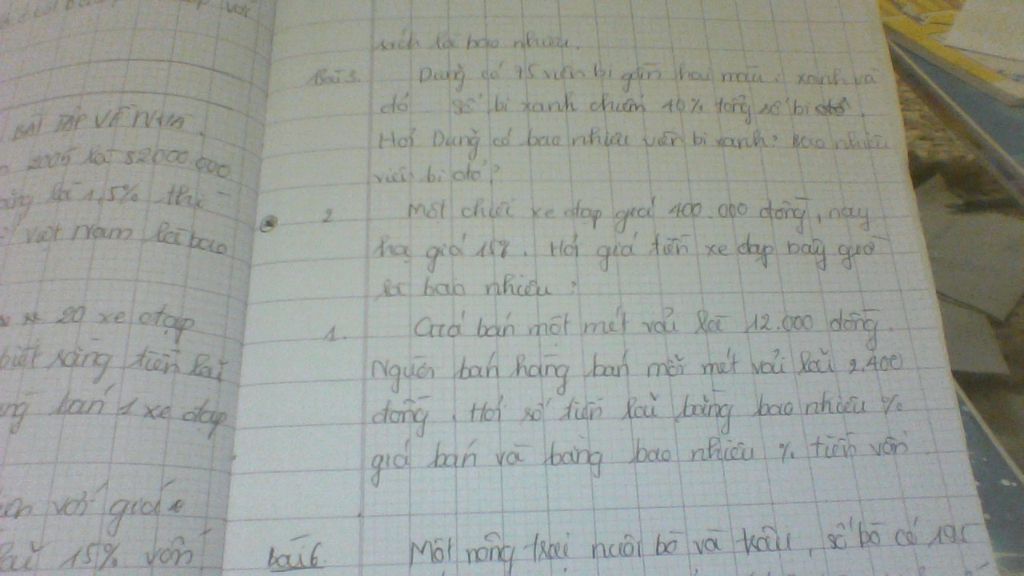 BÀI TẬP VỀ NHÀ
2005 là 52000.000
1,5% thì
Việt Nam là bao
20 xe đạp
biết rằng tiền lãi
bán 1 xe đạp
với giá
lãi 15% vốn
sách là bao nhiêu.
Bài 3. Dũng có 75 viên bi gồm hai màu: xanh và
đỏ số bi xanh chiếm 40% tổng số bi đỏ.
Hỏi Dũng có bao nhiêu viên bi xanh? Bao nhiêu
viên bi đỏ?
2 Một chiếc xe đạp giá 400.000 đồng, nay
hạ giá 15%. Hỏi giá tiền xe đạp bây giờ
là bao nhiêu?
1. Giá bán một mét vải là 12.000 đồng.
Người bán hàng bán mỗi mét vải lãi 2.400
đồng. Hỏi số tiền lãi bằng bao nhiêu %
giá bán và bằng bao nhiêu % tiền vốn
bài 6. Một nông trại nuôi bò và trâu, số bò có 195